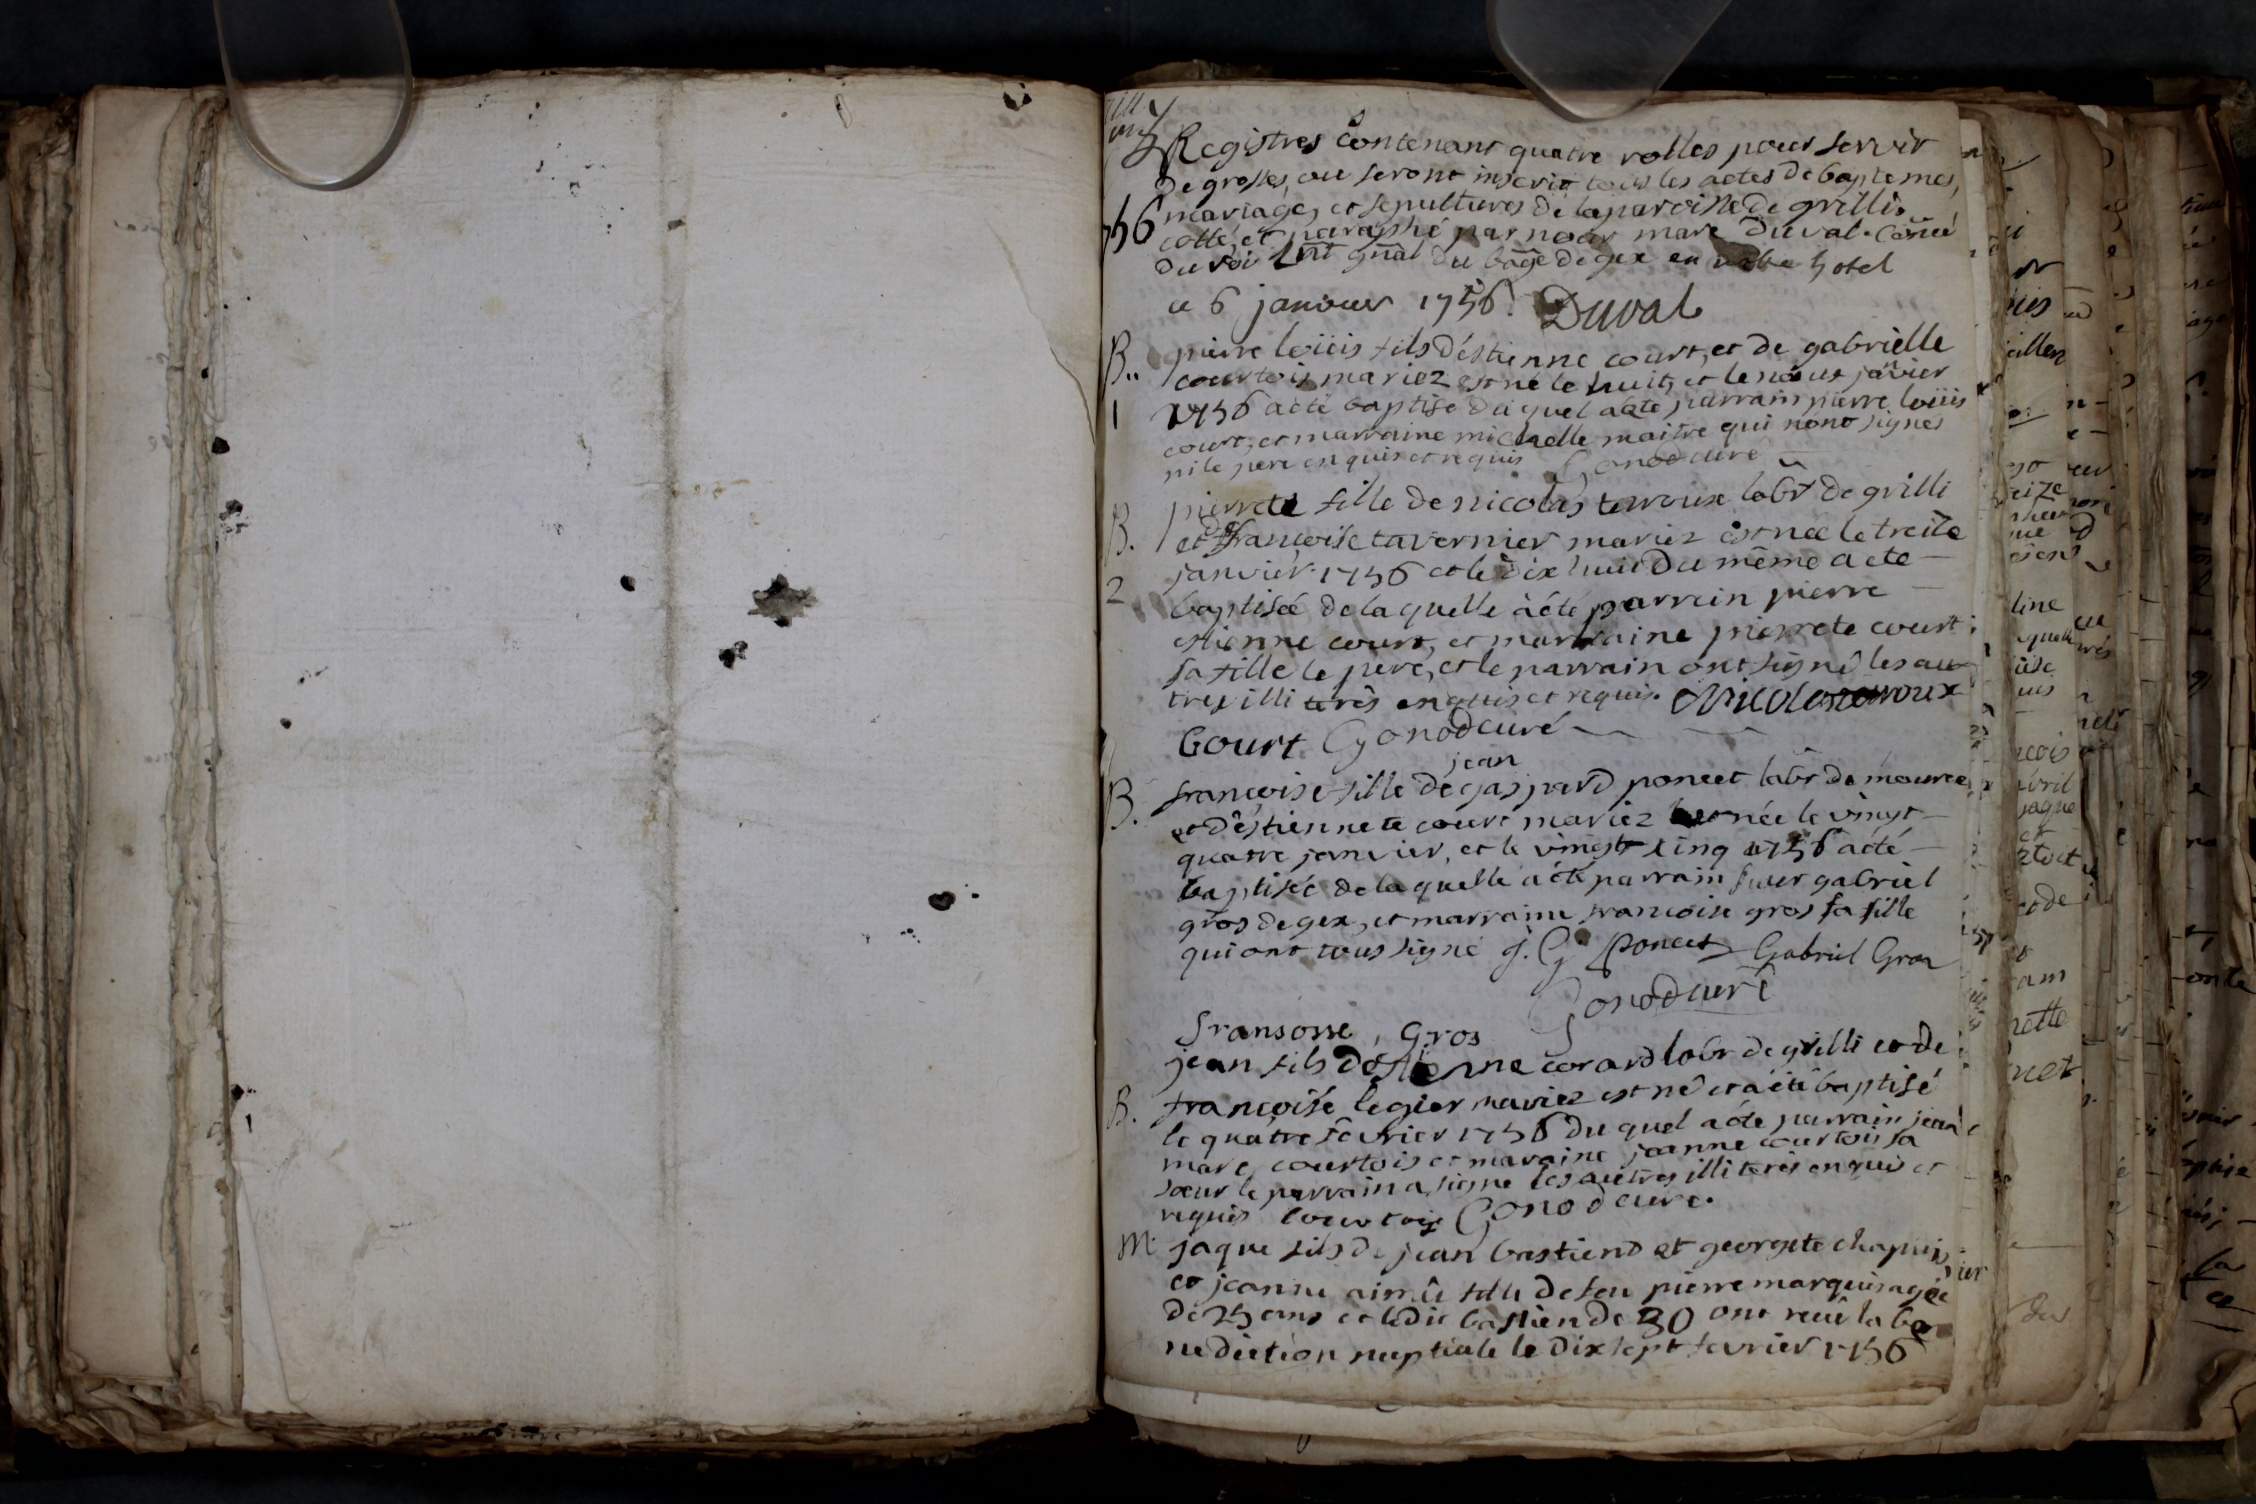 Registres contenant quatre rolles pour servir
de grosses, ou seront inscrit tous les actes de baptemes,
mariages, et sepultures de la paroisse de grilli.
756
cotté, et paraphé par nous marc Duval. Conˢᵉ
du roi Lnt gñal du bâge de gex en nôtre hotel
ce 6 janvier 1756. Duval
B.. pierre loüis fils d'éstienne court, et de gabrielle
courtois mariez est né le huit, et le neuf jãvier
1 1756 a été baptisé du quel a été parrain pierre loüis
court, et marraine michaelle maitre qui n'ont signes
ni le pere enquis et requis Gonod curé
B. pierrete fille de nicolas terroux labr de grilli
et de françoise tavernier mariez est née le treise
2 janvier 1756 et le dix huit du même a ete
baptisée de la quelle à été parrein pierre
estienne court, et marraine pierrete court
sa fille le pere, et le parrain ont signé les au
tres illiterés enquis et requis. Nicolas terroux
Court Gonod curé
jean
B. françoise fille de gaspard poncet labr de mource
et d'éstiennete court mariez est née le vingt
quatre janvier, et le vingt cinq 1756 a été
baptisée de la quelle a été parrain sieur gabriel
gros de gex, et marraine francoise gros sa fille
qui ont tous signé j. G. Poncet Gabriel Gros
Gonod curé
fransosse, Gros
jean fils d'éstienne corard labr de grilli et de
B. françoise legier mariez est né et a été baptisé
le quatre fevrier 1756 du quel a été parrain jean
marc courtois et maraine jeanne courtois sa
sœur le parrain a signe les autres illiterés enquis et
requis Courtois Gonod curé.
M. jaque fils de jean bastiend et georgete chapuis,
et jeanne aimée fille de feu pierre marquis agée
de 25 ans et ledit bastien de 30 ont reçû la be
nediction nuptiale le dix sept fevrier 1756